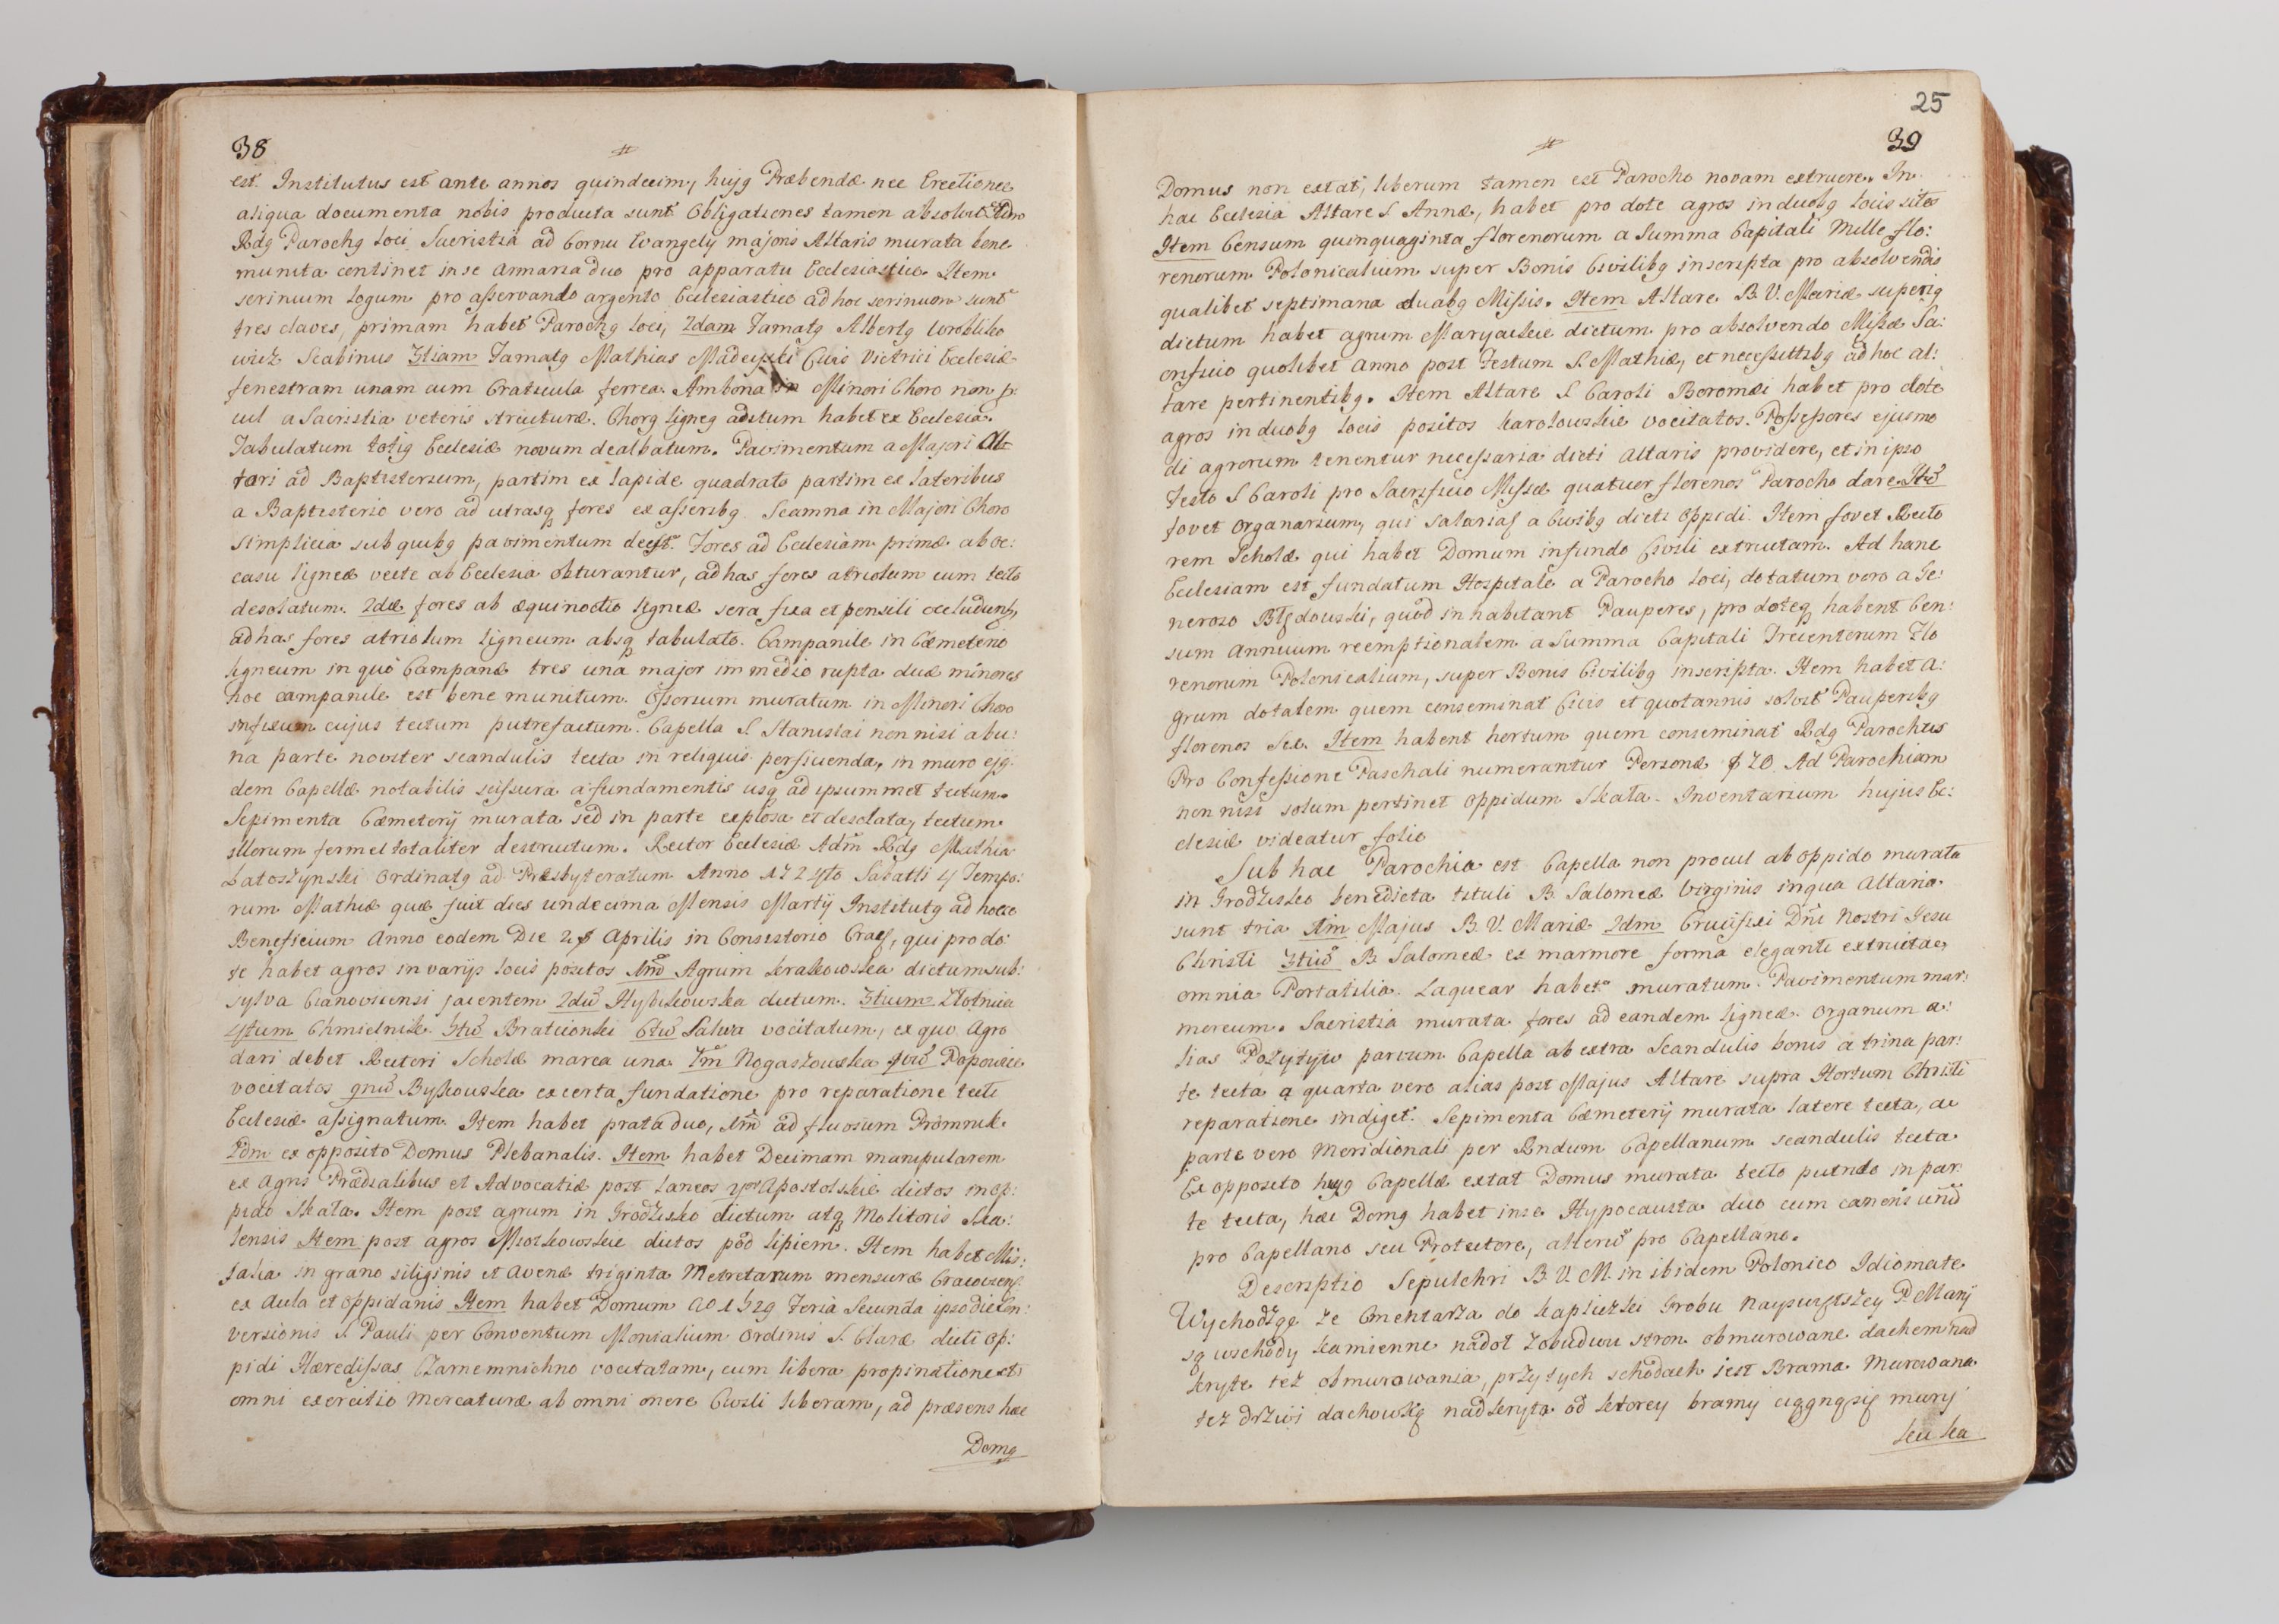 38
#
est. Institutus est ante annos quindecim, hujg Præbendæ nec Erectionec
aliqua documenta nobis producta sunt Obligationes tamen absolvit Adm
Rdg Parochg loci Sacristia ad Cornu Evangelij majoris Altaris murata bene
munita continet in se armaria duo pro apparatu Ecclesiastico Item
scrinium logum pro asservando argento Ecclesiastico ad hoc scrinium sunt
tres claves, primam habet Parochg loci, 2dam Famatg Albertg Wrobliko
wicz Scabinus 3tiam Famatg Mathias Madeyski Civis Victrici Ecclesiæ
fenestram unam cum Craticula ferrea. Ambona in Minori Choro non p:
cul a Sacristia veteris structuræ. Chorg ligneg aditum habet ex Ecclesia.
Tabulatum totig Ecclesiæ novum dealbatum. Pavimentum a Majori Al:
tari ad Baptisterium, partim ex lapide quadrato partim ex lateribus
a Baptisterio vero ad utrasq fores ex asseribg Scamna in Majori Choro
simplicia sub quibg pavimentum deest. Fores ad Ecclesiam primæ ab oc:
casu ligneæ vecte ab Ecclesia obturantur, ad has fores atriolum cum tecto
desolatum. 2dæ fores ab æquinoctio ligneæ sera fixa et pensili occludunf,
ad has fores atriolum ligneum absq tabulato. Campanile in Cæmeterio
ligneum in quo Campanæ tres una major in medio rupta duæ minores
hoc campanile est bene munitum. Ossorium muratum in Minori Choro
infixum cujus tectum putrefactum. Capella S Stanislai non nisi ab u:
na parte noviter scandulis tecta in reliquis perficienda, in muro ejg
dem Capellæ notabilis scissura a fundamentis usq ad ipsummet tectum.
Sepimenta Cæmeterij murata sed in parte explosa et desolata, tectum
illorum ferme totaliter destructum. Rector Ecclesiæ Adm Rdg Mathia
Latoszynski Ordinatg ad Præsbyteratum Anno 1724to Sabatti 4 Tempo:
rum Mathiæ quæ fuit dies undecima Mensis Martij Institutg ad hocce
Beneficium Anno eodem Die Aprilis in Consistorio Cracf, qui pro do:
te habet agros in varijs locis positos 1mũ Agrum Krakowska dictum sub:
sylva Cianoviensi jacentem 2dũ Hybikowska dictum. 3tium Złotnica
4tum Chmielnik. 5tũ Bratkowski 6tũ Salwa vocitatum, ex quo agro
dari debet Rectori Scholæ marca una 7m Nogaszowska 8vũ Popowice
vocitatos 9nũ Byskowska ex certa fundatione pro reparatione tecti
Ecclesiæ assignatum. Item habet prata duo, 1mũ ad fluvium Promnik
2dm ex opposito Domus Plebanalis. Item habet Decimam manipularem
ex agris Prædialibus et Advocatiæ post laneos Apostolskie dictos in op:
pido Skała. Item post agrum in Grodzisko dictum atq Molitoris Ska:
lensis Item post agros Moskowskie dictos pod lipiem. Item habet Mis:
salia in grano siliginis et avenæ triginta Metretarum mensuræ Cracovienf.
ex Aula et oppidanis Item habet Domum Ao 1529 Feria Secunda ipso die Con:
versionis S. Pauli per Conventum Monialium Ordinis S. Claræ dicti op:
pidi Hæredissas Czarnemnichno vocitatam, cum libera propinatione et
omni exercitio Mercaturæ ab omni onere Civili liberam, ad præsens hæc
Domg
25
39
#
Domus non extat, liberum tamen est Parocho novam extruere. In
hac Ecclesia Altare S Annæ, habet pro dote agros in duobg locis sitos
Item Censum quinquaginta florenorum a Summa Capitali Mille flo:
renorum Polonicalium super Bonis Civilibg inscripta pro absolvendis
qualibet septimana duabg Missis. Item Altare B. V. Mariæ superig
dictum habet agrum Maryackie dictum pro absolvendo Missæ Sa:
crificio quolibet anno post Festum S. Mathiæ, et necessitibg ad hoc al:
tare pertinentibg. Item Altare S Caroli Boromæi habet pro dote
agros in duobg locis positos karolowskie vocitatos. Possessores ejusmo
di agrorum tenentur necessaria dicti altaris providere, et in ipso
festo S Caroli pro Sacrificio Missæ quatuor florenos Parocho dare. Itũ
fovet Organarium, qui salariaf a Civibg dicti oppidi. Item fovet Recto
rem Scholæ qui habet Domum in fundo Civili extructam. Ad hanc
Ecclesiam est fundatum Hospitale a Parocho loci, dotatum vero a Ge:
neroso Błędowski, quod inhabitant Pauperes, pro doteq habent Cen:
sum annuum reemptionalem a Summa Capitali Trecentorum Flo
renorum Polonicalium, super Bonis Civilibg inscripta. Item habet a:
grum dotalem quem conseminat Civis et quotannis solvit Pauperibg
florenos Sex. Item habent hortum quem conseminat Rdg Parochus
Pro Confessione Paschali numerantur Personæ 720. Ad Parochiam
non nisi solum pertinet oppidum Skała. Inventarium hujus Ec:
clesiæ videatur folio
Sub hac Parochia est Capella non procul ab oppido murata
in Grodzisko benedicta tituli B. Salomeæ Virginis in qua Altaria
sunt tria 1m Majus B. V. Mariæ 2dm Crucifixi Dni Nostri Jesu
Christi 3tiũ B Salomeæ ex marmore forma eleganti extructa,
omnia Portatilia. Laquear habet muratum. Pavimentum mar:
moreum. Sacristia murata fores ad eandem ligneæ. Organum a:
lias Pozytyw parvum Capella ab extra Scandulis bonis a trina par:
te tecta a quarta vero alias post Majus Altare supra Hortum Christi
reparatione indiget. Sepimenta Cæmeterij murata latere tecta, a
parte vero Meridionali per Rndum Capellanum scandulis tecta
Ex opposito hujg Capellæ extat Domus murata tecto putrido in par:
te tecta, hæc Domg habet in se Hypocausta duo cum camenis unũ
pro Capellano seu Protectore, alterũ pro Capellano.
Descriptio Sepulchri B. V. M. in ibidem Polonico Idiomate
Wychodząc ze Cmentarza do kapliczki Grobu Nayswiętszey P Maryi
są wschody kamienne nadoł z obudwu stron obmurowane dachem nad
kryte też obmurowania, przy tych schodach iest Brama Murowana
też drzwi dachowką nadkryta od ktorey bramy ciągną się mury
kuska